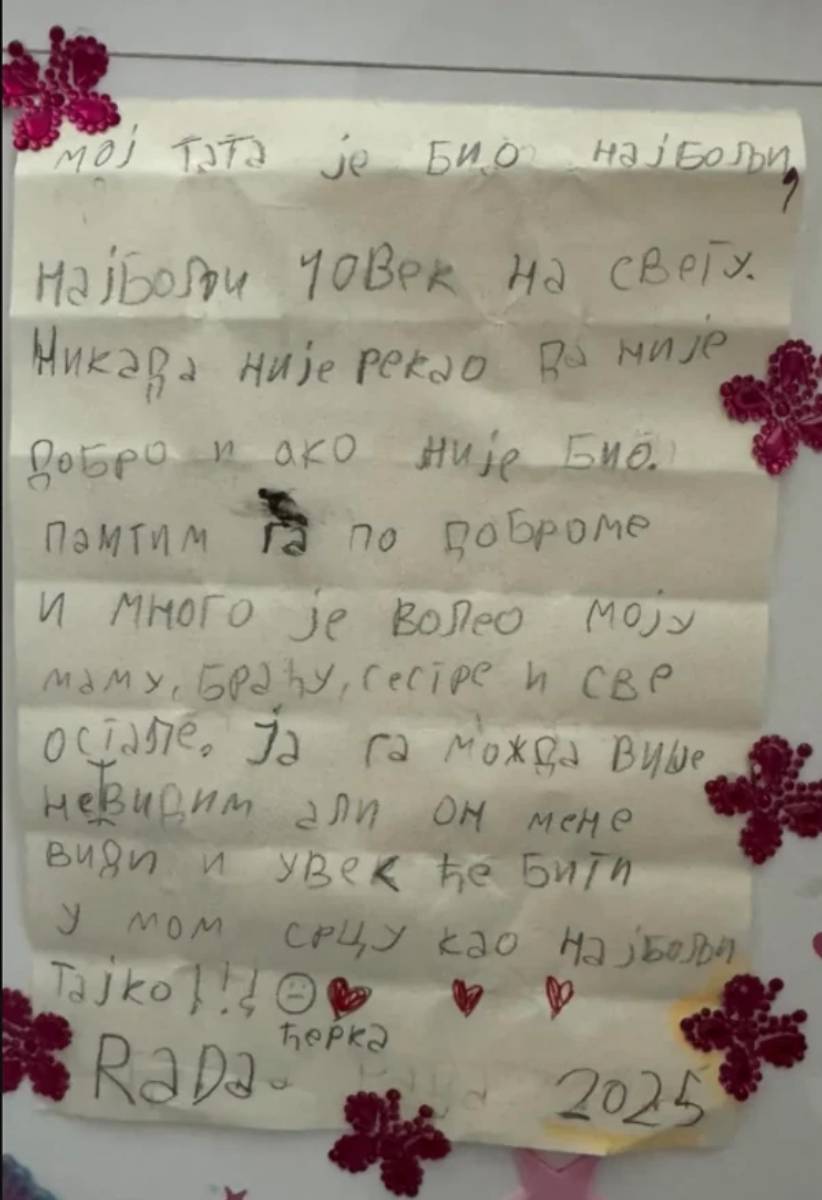 мој тата је био најбољи,
најбољи човек на свету.
Никада није рекао да није
добро и ако није био.
памтим га по доброме
и много је волео моју
маму, браћу, сестре и све
остале. Ја га можда више
невидим али он мене
види и увек ће бити
у мом срцу као најбољи
тајко!!!
ћерка
RaDa. 2025